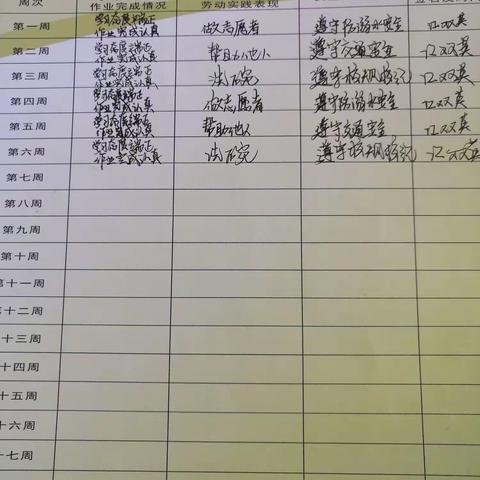 周次 作业完成情况 劳动实践表现
第一周 学习态度端正 作业完成认真 做志愿者 遵守防溺水安全 江双英
第二周 学习态度端正 作业完成认真 帮助他人 遵守交通安全 江双英
第三周 学习态度端正 作业完成认真 遵守校规校纪 江双英
第四周 学习态度端正 作业完成认真 做志愿者 遵守防溺水安全 江双英
第五周 学习态度端正 作业完成认真 帮助他人 遵守交通安全 江双英
第六周 学习态度端正 作业完成认真 遵守校规校纪 江双英
第七周
第八周
第九周
第十周
十一周
十二周
十三周
十四周
十五周
十六周
十七周